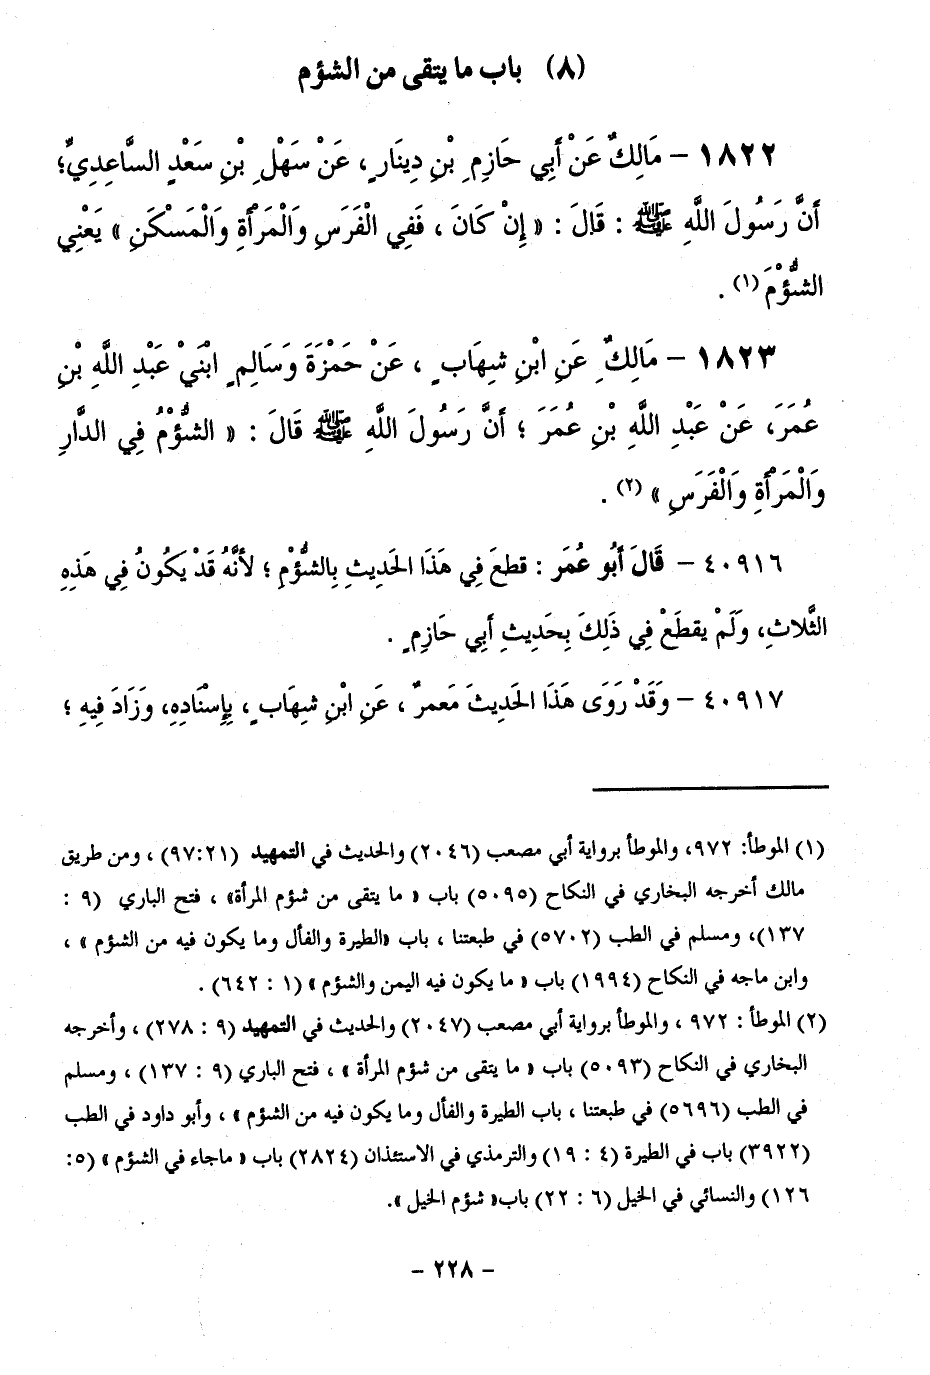 (٨) باب ما يتقى من الشؤم
١٨٢٢ – مَالِكٌ عَنْ أَبِي حَازِمِ بْنِ دِينَارٍ، عَنْ سَهْلِ بْنِ سَعْدٍ السَّاعِدِيِّ؛
أَنَّ رَسُولَ اللَّهِ ﷺ : قَالَ : « إِنْ كَانَ ، فَفِي الْفَرَسِ وَالْمَرْأَةِ وَالْمَسْكَنِ » يَعْنِي
الشُّؤْمَ (١) .
١٨٢٣ – مَالِكٌ عَنِ ابْنِ شِهَابٍ ، عَنْ حَمْزَةَ وَسَالِمٍ ابْنَيْ عَبْدِ اللَّهِ بْنِ
عُمَرَ، عَنْ عَبْدِ اللَّهِ بْنِ عُمَرَ ؛ أَنَّ رَسُولَ اللَّهِ ﷺ قَالَ : « الشُّؤْمُ فِي الدَّارِ
وَالْمَرْأَةِ وَالْفَرَسِ » (٢) .
٤٠٩١٦ – قَالَ أَبُو عُمَر : قطعَ فِي هَذَا الحَديثِ بِالشُّؤْمِ ؛ لأَنَّهُ قَدْ يَكُونُ فِي هَذِهِ
الثَّلاثِ، وَلَمْ يقطَعْ فِي ذَلِكَ بِحَديثِ أَبِي حَازِمٍ .
٤٠٩١٧ – وَقَدْ رَوَى هَذَا الحَديثَ مَعمرٌ ، عَنِ ابْنِ شِهَابٍ، بِإِسْنَادِهِ، وَزَادَ فِيهِ ؛
(١) الموطأ: ٩٧٢، والموطأ برواية أبي مصعب (٢٠٤٦) والحديث في التمهيد (٩٧:٢١) ، ومن طريق
مالك أخرجه البخاري في النكاح (٥٠٩٥) باب « ما يتقى من شؤم المرأة» ، فتح الباري (٩ :
١٣٧)، ومسلم في الطب (٥٧٠٢) في طبعتنا ، باب «الطيرة والفأل وما يكون فيه من الشؤم » ،
وابن ماجه في النكاح (١٩٩٤) باب « ما يكون فيه اليمن والشؤم » (١ : ٦٤٢) .
(٢) الموطأ : ٩٧٢ ، والموطأ برواية أبي مصعب (٢٠٤٧) والحديث في التمهيد (٩ : ٢٧٨) ، وأخرجه
البخاري في النكاح (٥٠٩٣) باب « ما يتقى من شؤم المرأة » ، فتح الباري (٩ : ١٣٧) ، ومسلم
في الطب (٥٦٩٦) في طبعتنا ، باب الطيرة والفأل وما يكون فيه من الشؤم » ، وأبو داود في الطب
(٣٩٢٢) باب في الطيرة (٤ : ١٩) والترمذي في الاستئذان (٢٨٢٤) باب « ماجاء في الشؤم » (٥:
١٢٦) والنسائي في الخيل (٦ : ٢٢) باب« شؤم الخيل ».
– ٢٢٨ –